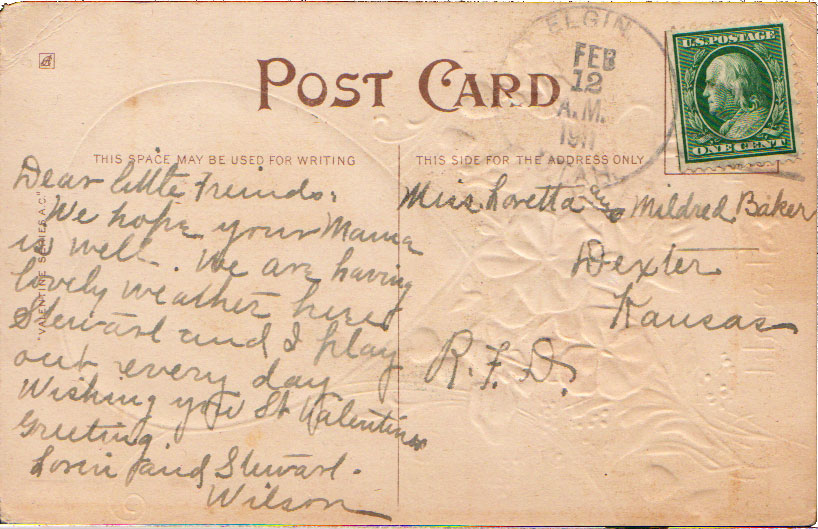 POST CARD
ELGIN
FEB
12
A.M.
1911
UTAH
U.S. POSTAGE
ONE CENT
THIS SPACE MAY BE USED FOR WRITING
THIS SIDE FOR THE ADDRESS ONLY
"VALENTINE SERIES A.C."
Dear little Freinds:
We hope your Mama
is well. We are having
lovely weather here
Stewart and I play
out every day
Wishing you St Valentines
Greeting.
Loren and Stewart.
Wilson
Miss Loretta and Mildred Baker
Dexter
Kansas
R. F. D.